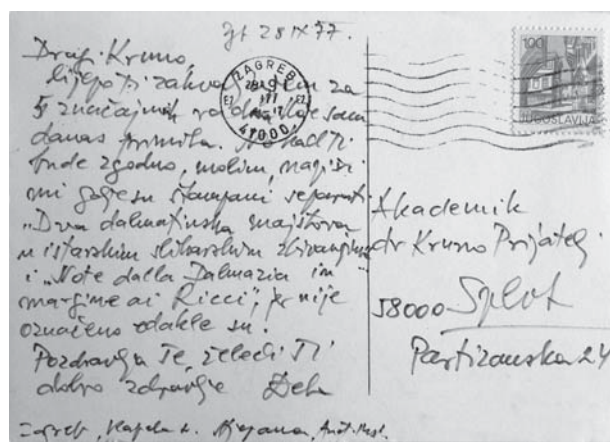 Zg 28 IX 77.
Dragi Kruno,
lijepo ti zahvaljujem za
5 značajnih radnja koje sam
danas primila. No kad ti
bude zgodno, molim, napiši
mi gdje su štampani separati
"Dva dalmatinska majstora
u istarskim slikarskim zbivanjima"
i "Note dalla Dalmazia in
margine ai Ricci", jer nije
označeno odakle su.
Pozdravlja Te, želeći Ti
dobro zdravlje
Zagreb, Kapela sv.
ZAGREB
41000
100
JUGOSLAVIJA
Akademik
dr Kruno Prijatelj
58000 Split
Partizanska 24